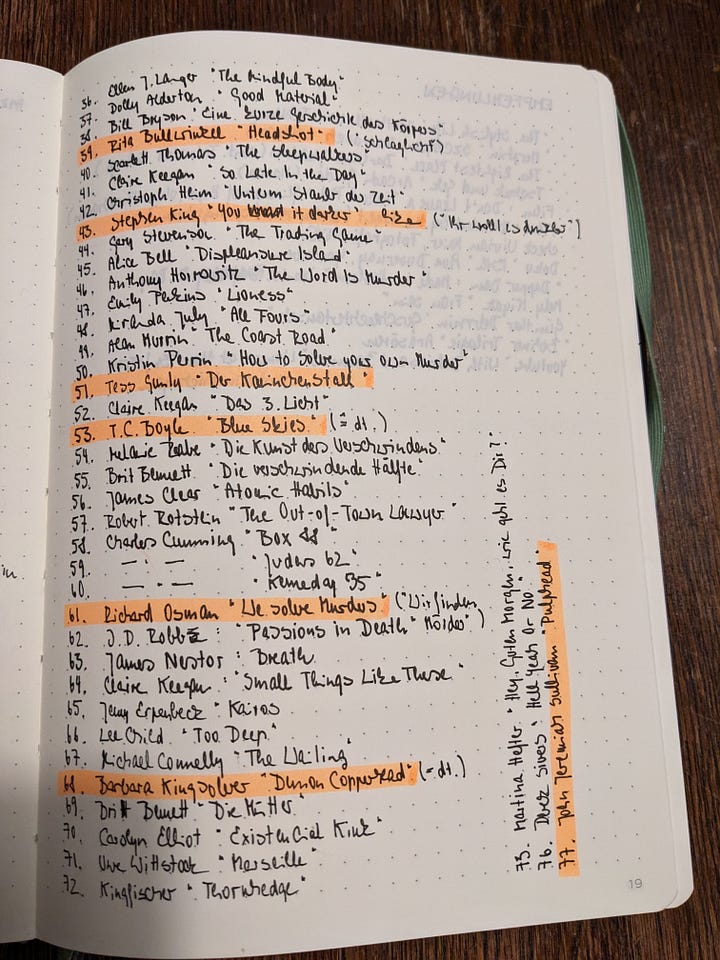 36. Ellen J. Langer "The Mindful Body"
37. Dolly Alderton "Good Material"
38. Bill Bryson "Eine kurze Geschichte des Körpers"
39. Rita Bullwinkel "Headshot" ("Schlaglicht")
40. Scarlett Thomas "The Sleepwalkers"
41. Claire Keegan "So Late In the Day"
42. Christoph Heim "Unterm Staub der Zeit"
43. Stephen King "You it darker" ("Ihr wollt es dunkler")
44. Gary Stevenson "The Trading Game"
45. Alice Bell "Displeasure Island"
46. Anthony Horrowitz "The Word Is Murder"
47. Emily Perkins "Lioness"
48. Miranda July "All Fours"
49. Alan Murrin "The Coast Road"
50. Kristin Perrin "How to solve your own Murder"
51. Tess Gunty "Der Kaninchenstall"
52. Claire Keegan "Das 3. Licht"
53. T.C. Boyle "Blue Skies" (= dt.)
54. Melanie Raabe "Die Kunst des Verschwindens"
55. Brit Bennett "Die verschwindende Hälfte"
56. James Clear "Atomic Habits"
57. Robert Rotstein "The Out-of-Town Lawyer"
58. Charles Cumming "Box 88"
59. — " — "Judas 62"
60. — " — "Kennedy 35"
61. Richard Osman "We solve Murders" ("Wir finden Mörder")
62. J.D. Robb: "Passions in Death"
63. James Nestor: Breath
64. Claire Keegan: "Small Things Like These"
65. Jenny Erpenbeck "Kairos"
66. Lee Child "Too Deep"
67. Michael Connelly "The Waiting"
68. Barbara Kingsolver "Demon Copperhead" (= dt.)
69. Brit Bennett "Die Mütter"
70. Carolyn Elliot "Existencial Kink"
71. Uwe Wittstock "Marseille"
72. Kingfischer "Thornhedge"
73. Martina Hefter "Hey, Guten Morgen, wie geht es Dir?"
76. Derek Sivers "Hell Yeah Or No"
77. John Jeremiah Sullivan "Pulphead"
19